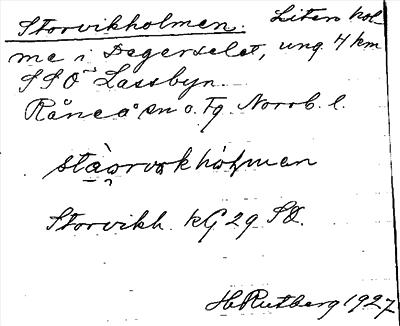 Storvikholmen. Liten hol
me i Degerselet, ung 4 km
SSO Lassbyn.
Råneå sn o. Tg. Norrb. l.
Storvikh. KG 29 SO.
H Rutberg 1927